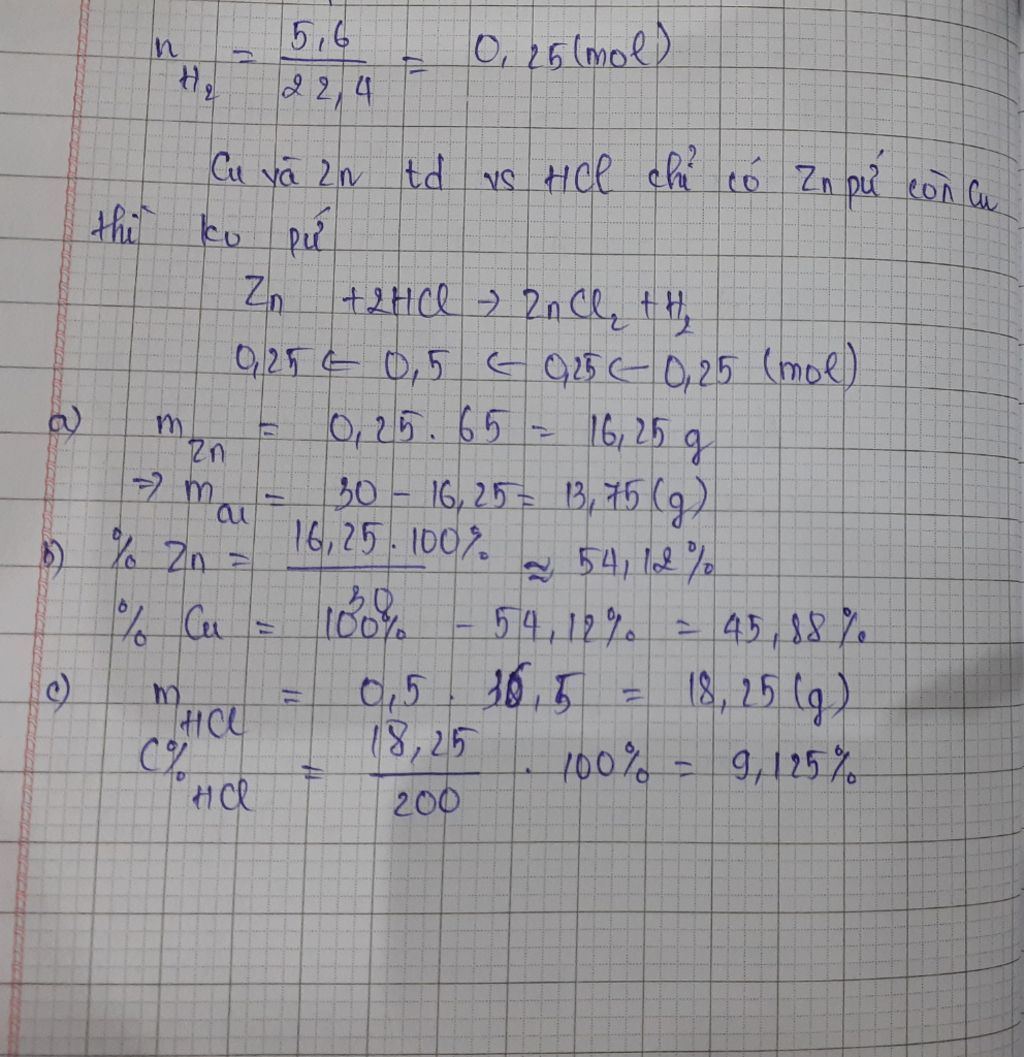 n H₂ = 5,6 / 22,4 = 0,25 (mol)
Cu và Zn td vs HCl chỉ có Zn pứ còn Cu
thì ko pứ
Zn + 2HCl → ZnCl₂ + H₂
0,25 ← 0,5 ← 0,25 ← 0,25 (mol)
a) m Zn = 0,25 . 65 = 16,25 g
⇒ m Cu = 30 - 16,25 = 13,75 (g)
b) % Zn = 16,25 . 100% / 30 ≈ 54,12%
% Cu = 100% - 54,12% = 45,88%
c) m HCl = 0,5 . 36,5 = 18,25 (g)
C% HCl = 18,25 / 200 . 100% = 9,125%